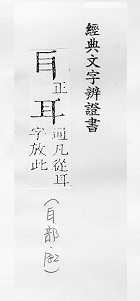 經典文字辨證書
耳正
耳通凡從耳
字放此
(耳部·82)